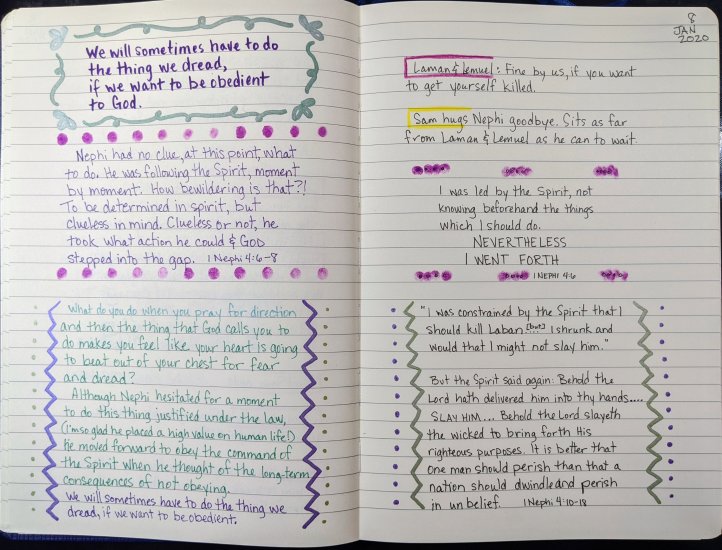 We will sometimes have to do
the thing we dread,
if we want to be obedient
to God.
Nephi had no clue, at this point, what
to do. He was following the Spirit, moment
by moment. How bewildering is that?!
To be determined in spirit, but
clueless in mind. Clueless or not, he
took what action he could & GOD
stepped into the gap. 1 Nephi 4:6-8
What do you do when you pray for direction
and then the thing that God calls you to
do makes you feel like your heart is going
to beat out of your chest for fear
and dread?
Although Nephi hesitated for a moment
to do this thing justified under the law,
(I'm so glad he placed a high value on human life!)
he moved forward to obey the command of
the Spirit when he thought of the long-term
consequences of not obeying.
We will sometimes have to do the thing we
dread, if we want to be obedient.
8
JAN
2020
Laman & Lemuel: Fine by us, if you want
to get yourself killed.
Sam hugs Nephi goodbye. Sits as far
from Laman & Lemuel as he can to wait.
I was led by the Spirit, not
knowing beforehand the things
which I should do.
NEVERTHELESS
I WENT FORTH
1 NEPHI 4:6
"I was constrained by the Spirit that I
should kill Laban [but] I shrunk and
would that I might not slay him."
But the Spirit said again: Behold the
Lord hath delivered him into thy hands....
SLAY HIM.... Behold the Lord slayeth
the wicked to bring forth His
righteous purposes. It is better that
one man should perish than that a
nation should dwindle and perish
in unbelief. 1 Nephi 4:10-18